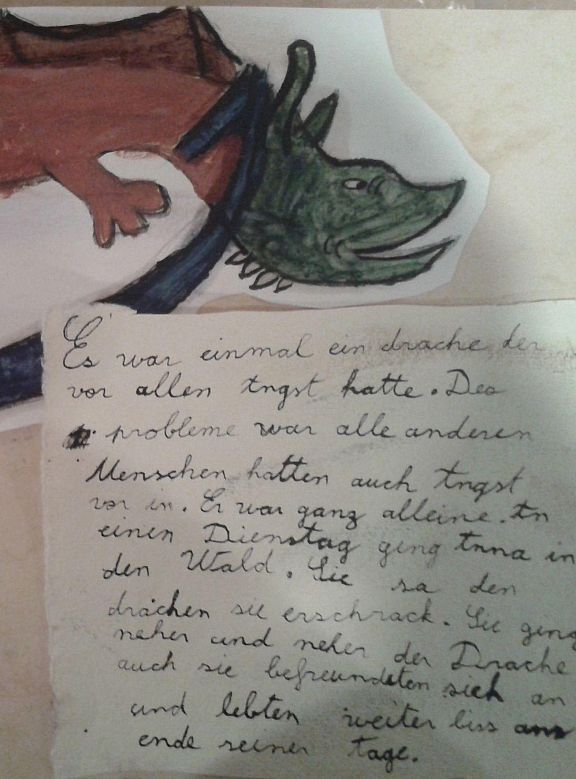 Es war einmal ein drache der
vor allen Angst hatte. Das
probleme war alle anderen
Menschen hatten auch Angst
vor in. Er war ganz alleine. An
einen Dienstag ging Anna in
den Wald. Sie sa den
drachen sie erschrack. Sie ging
neher und neher der Drache
auch sie befreundeten sich an
und lebten weiter biss ans
ende seiner tage.